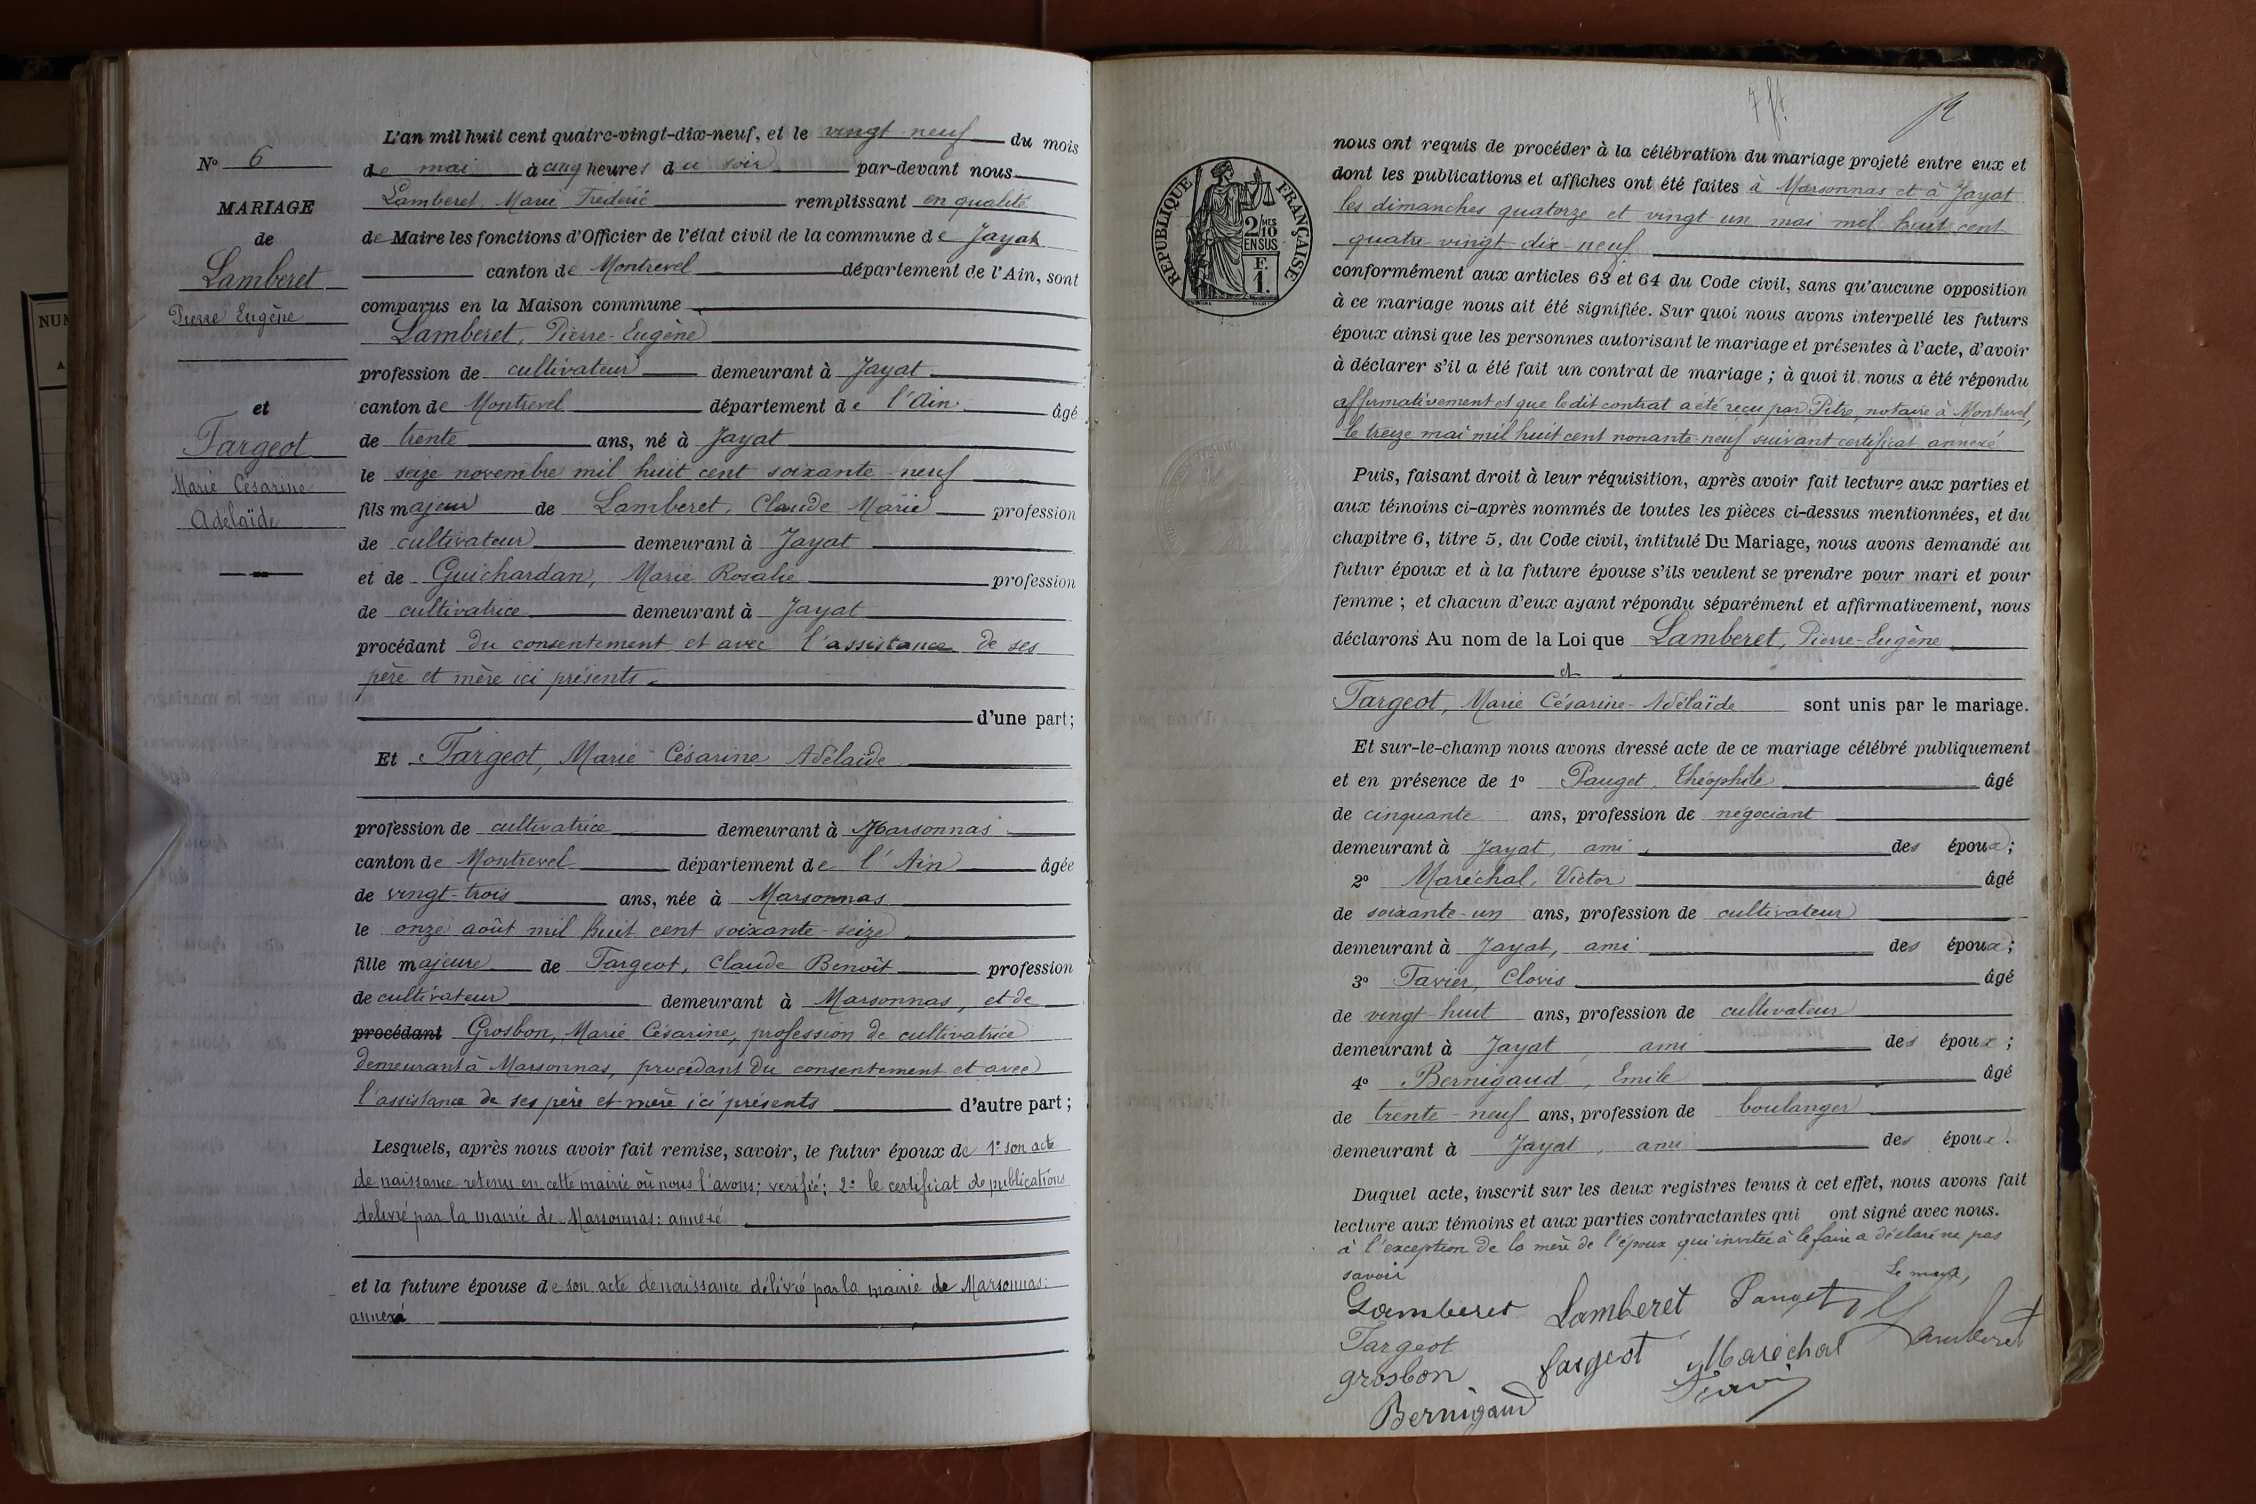 N° 6
MARIAGE
de
Lamberet
Pierre Eugène
et
Fargeot
Marie Césarine
Adélaïde
L'an mil huit cent quatre-vingt-dix-neuf, et le vingt-neuf du mois
de mai à cinq heures du soir par-devant nous
Lamberet, Marie Frédéric remplissant en qualité
de Maire les fonctions d'Officier de l'état civil de la commune de Jayat
canton de Montrevel département de l'Ain, sont
comparus en la Maison commune
Lamberet, Pierre-Eugène
profession de cultivateur demeurant à Jayat
canton de Montrevel département de l'Ain âgé
de trente ans, né à Jayat
le seize novembre mil huit cent soixante-neuf
fils majeur de Lamberet, Claude Marie profession
de cultivateur demeurant à Jayat
et de Guichardan, Marie Rosalie profession
de cultivatrice demeurant à Jayat
procédant du consentement et avec l'assistance de ses
père et mère ici présents.
d'une part;
Et Fargeot, Marie-Césarine Adélaïde
profession de cultivatrice demeurant à Marsonnas
canton de Montrevel département de l'Ain âgée
de vingt-trois ans, née à Marsonnas
le onze août mil huit cent soixante-seize
fille majeure de Fargeot, Claude Benoît profession
de cultivateur demeurant à Marsonnas, et de
procédant Grosbon, Marie Césarine, profession de cultivatrice
demeurant à Marsonnas, procédant du consentement et avec
l'assistance de ses père et mère ici présents d'autre part;
Lesquels, après nous avoir fait remise, savoir, le futur époux de 1° son acte
de naissance retenu en cette mairie où nous l'avons; verifié; 2° le certificat de publications
délivré par la mairie de Marsonnas: annexé
et la future épouse de son acte de naissance délivré par la mairie de Marsonnas:
annexé
7 ft.
RÉPUBLIQUE FRANÇAISE
2/10 MES
EN SUS
F.
1.
nous ont requis de procéder à la célébration du mariage projeté entre eux et
dont les publications et affiches ont été faites à Marsonnas et à Jayat
les dimanches quatorze et vingt-un mai mil huit cent
quatre-vingt-dix-neuf
conformément aux articles 63 et 64 du Code civil, sans qu'aucune opposition
à ce mariage nous ait été signifiée. Sur quoi nous avons interpellé les futurs
époux ainsi que les personnes autorisant le mariage et présentes à l'acte, d'avoir
à déclarer s'il a été fait un contrat de mariage; à quoi il nous a été répondu
affirmativement et que ledit contrat a été reçu par Pitre, notaire à Montrevel,
le treize mai mil huit cent nonante-neuf suivant certificat annexé
Puis, faisant droit à leur réquisition, après avoir fait lecture aux parties et
aux témoins ci-après nommés de toutes les pièces ci-dessus mentionnées, et du
chapitre 6, titre 5, du Code civil, intitulé Du Mariage, nous avons demandé au
futur époux et à la future épouse s'ils veulent se prendre pour mari et pour
femme; et chacun d'eux ayant répondu séparément et affirmativement, nous
déclarons Au nom de la Loi que Lamberet, Pierre-Eugène
et
Fargeot, Marie Césarine-Adélaïde sont unis par le mariage.
Et sur-le-champ nous avons dressé acte de ce mariage célébré publiquement
et en présence de 1° Pauget, Théophile âgé
de cinquante ans, profession de négociant
demeurant à Jayat, ami des époux;
2° Maréchal, Victor âgé
de soixante-un ans, profession de cultivateur
demeurant à Jayat, ami des époux;
3° Tavier, Clovis âgé
de vingt-huit ans, profession de cultivateur
demeurant à Jayat, ami des époux;
4° Bernigaud, Emile âgé
de trente-neuf ans, profession de boulanger
demeurant à Jayat, ami des époux.
Duquel acte, inscrit sur les deux registres tenus à cet effet, nous avons fait
lecture aux témoins et aux parties contractantes qui ont signé avec nous.
à l'exception de la mère de l'époux qui invitée à le faire a déclaré ne pas
savoir
Le maire,
Lamberet Lamberet Pauget Lamberet
Fargeot
grosbon fargeot Maréchal
Bernigaud